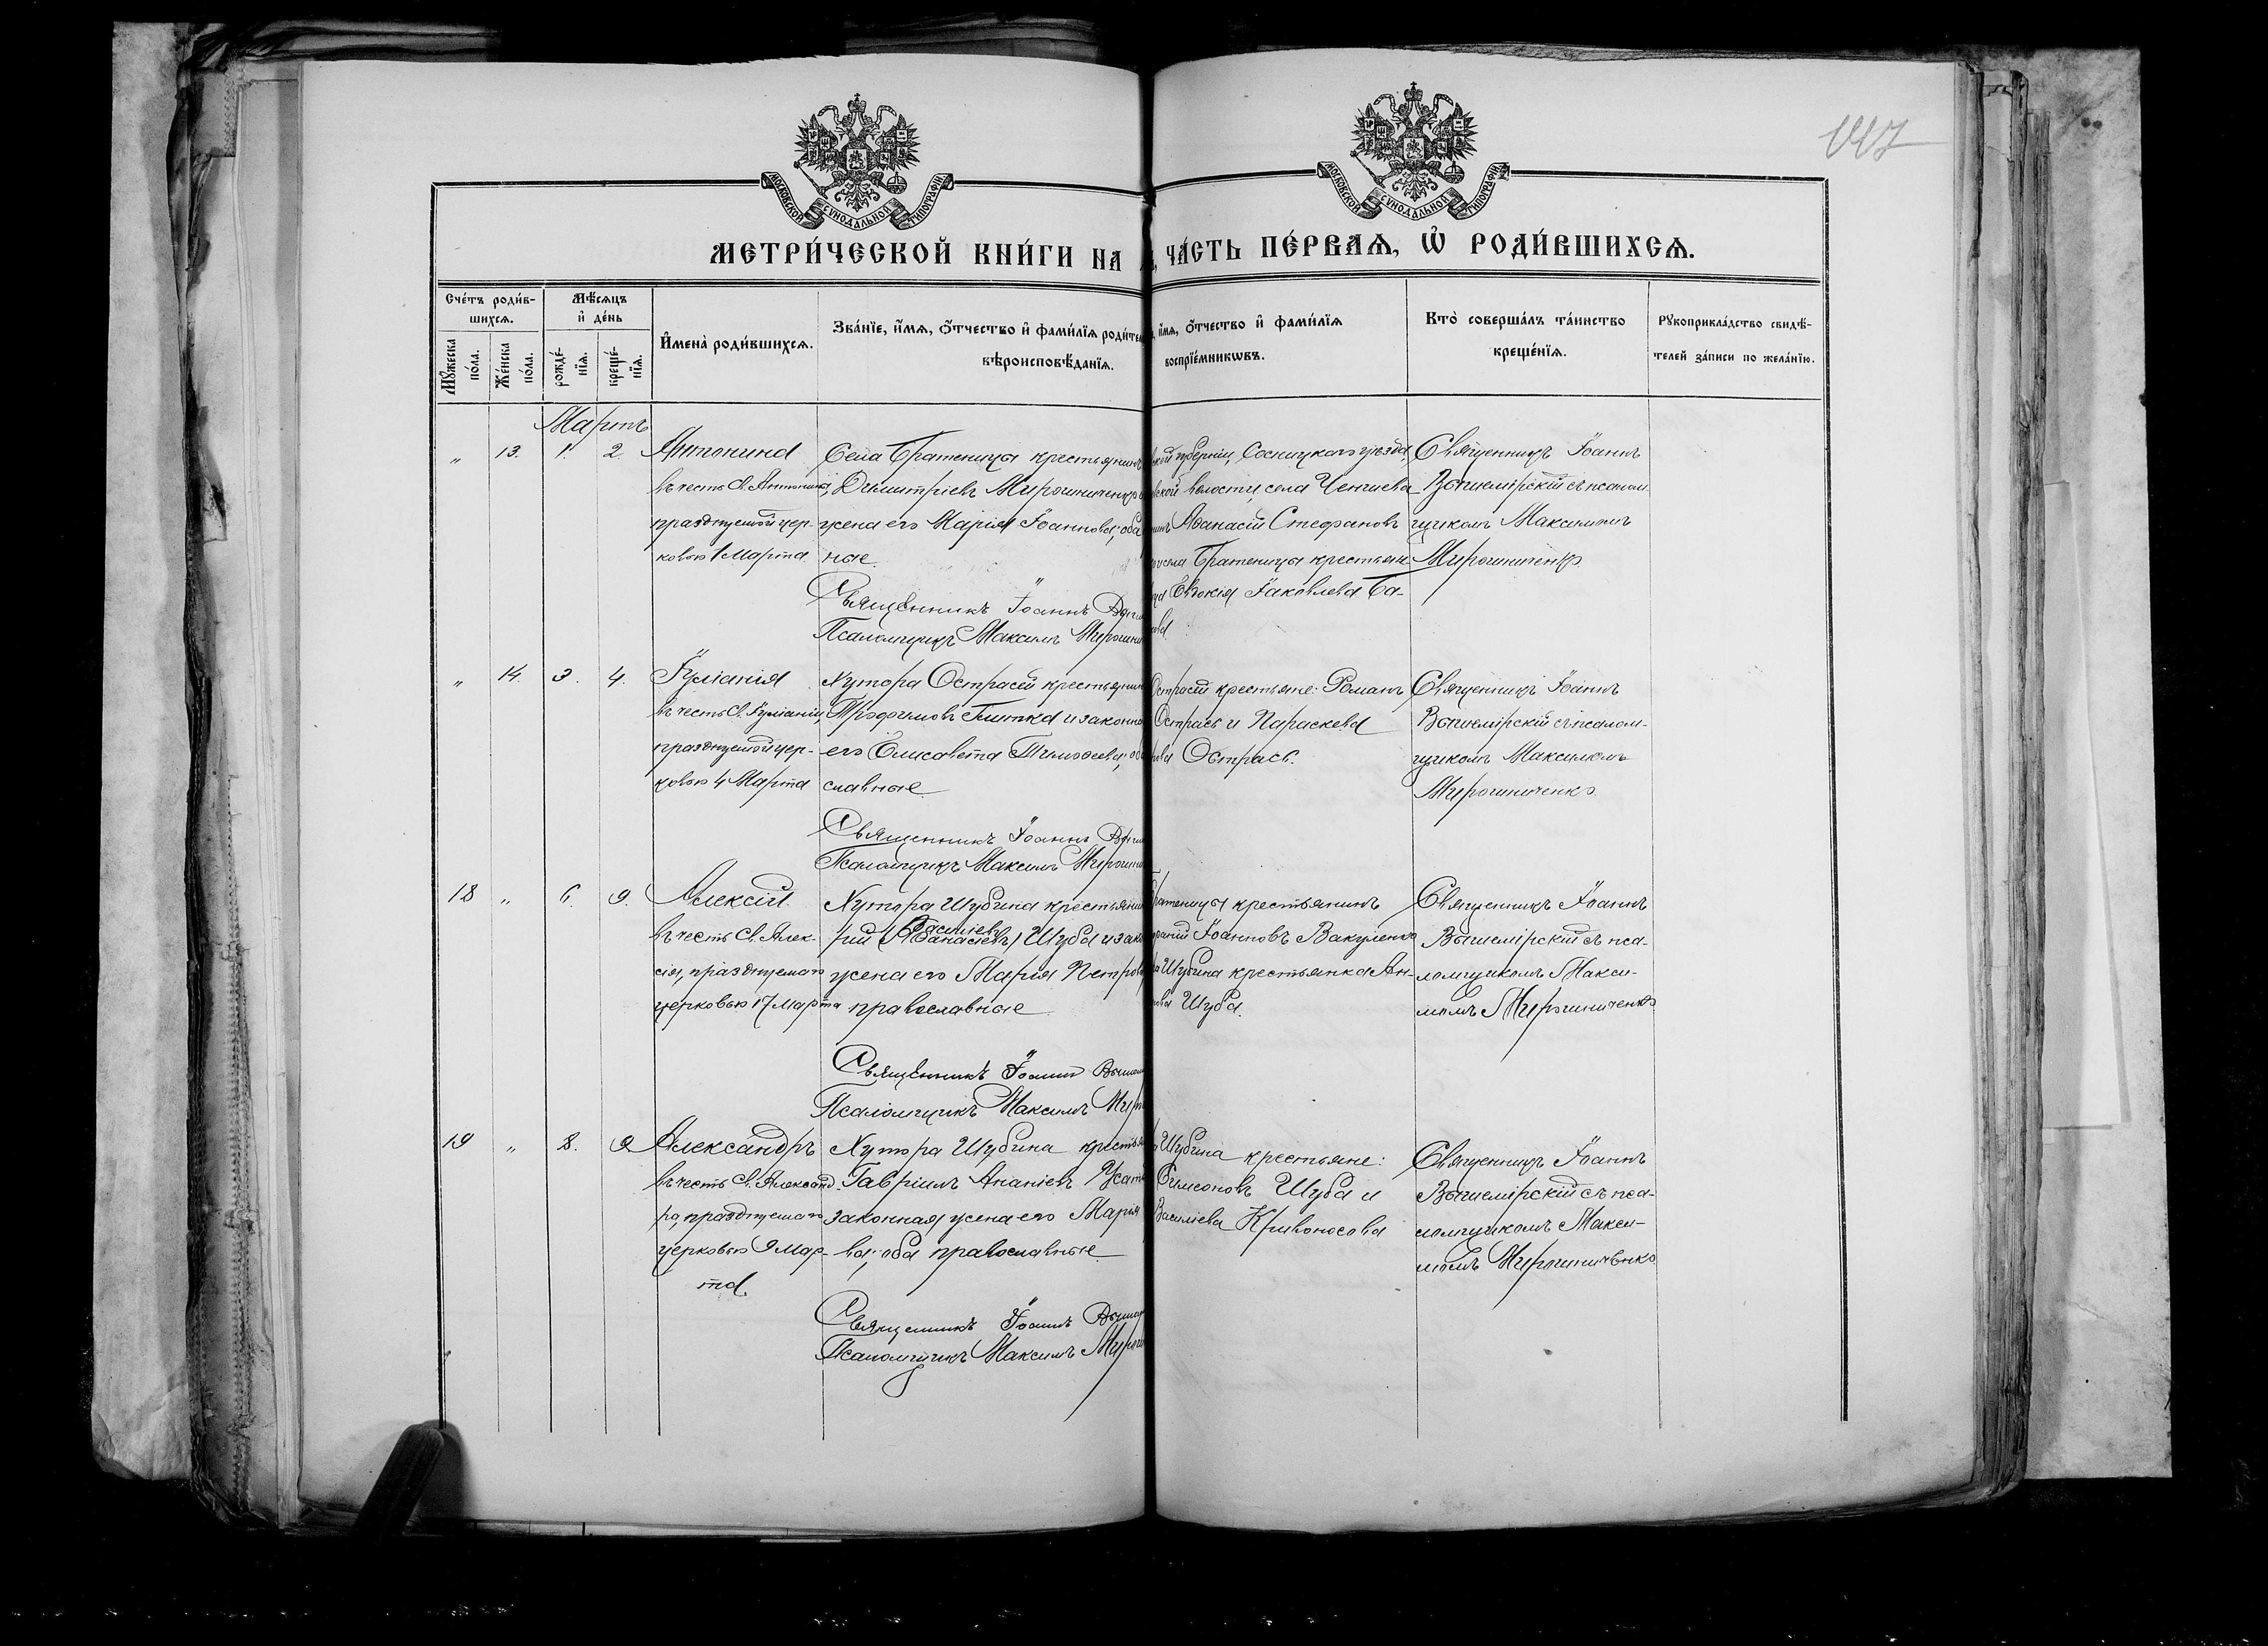 117
МОСКОВСКОЙ СѴНОДАЛЬНОЙ ТИПОГРАФІИ
МОСКОВСКОЙ СѴНОДАЛЬНОЙ ТИПОГРАФІИ
МЕТРИ́ЧЕСКОЙ КНИ́ГИ НА
ЧА́СТЬ ПЕ́РВАѦ, Ѽ РОДИ́ВШИХСѦ.
Сче́тъ роди́в-
шихсѧ.
Мѣ́сѧцъ
и҆ де́нь
Мꙋ́жеска по́ла.
Же́нска по́ла.
рожде́-
нїѧ.
креще́-
нїѧ.
И҆мена̀ роди́вшихсѧ.
Зва́нїе, и҆́мѧ, ѻ҆́тчество и҆ фами́лїѧ родите
вѣроисповѣ́данїѧ.
и҆́мѧ, ѻ҆́тчество и҆ фами́лїѧ
воспрїе́мникѡвъ.
Кто̀ соверша́лъ та́инство
креще́нїѧ.
Рꙋкоприкла́дство свидѣ́-
телей за́писи по жела́нїю.
Мартъ
" 13. 1. 2.
Антонина
въ честь Св. Антонины,
празднуемой цер-
ковью 1 Марта
Села Братеницы крестьянинъ
Димитріевъ Мирошниченко и
жена его Марія Іоаннова; оба
ные.
Священникъ Іоаннъ
Псаломщикъ Максимъ Мирошни
ской губерніи, Сосницкаго уѣзда,
ской волости, села
нинъ Аѳанасій Стефановъ
села Братеницы крестьян
Евдокія Іаковлева Ба-
Священникъ Іоаннъ
Вышемірскій съ псалом-
щикомъ Максимомъ
Мирошниченко
" 14. 3. 4.
Іуліанія
въ честь Св. Іуліаніи,
празднуемой цер-
ковью 4 Марта
Хутора Острасей крестьянин
Трофимовъ Глитка и законна
его Елисавета Тимоѳеева; оба
славные
Священникъ Іоаннъ
Псаломщикъ Максимъ Мирошни
Острасей крестьяне: Романъ
Острась и Параскева
Острась.
Священникъ Іоаннъ
Вышемірскій съ псалом-
щикомъ Максимомъ
Мирошниченко
18 " 6. 9.
Алексій
въ честь Св. Алек-
сія, празднуемаго
церковью 17 Марта
Хутора Шубина крестьянин
Василіевъ
рій (Аѳанасіевъ) Шуба и зако
жена его Марія Петров
православные
Священникъ Іоаннъ Вышем
Псаломщикъ Максимъ Миро
Братеницы крестьянинъ
Іоанновъ Вакуленко
Шубина крестьянка Ан-
Шуба.
Священникъ Іоаннъ
Вышемірскій съ пса-
ломщикомъ Макси-
момъ Мирошниченко
19 " 8. 9
Александръ
въ честь Св. Александ-
ра, празднуемаго
церковью 9 Мар-
та
Хутора Шубина крестья
Гавріилъ Ананіевъ Усат
законная жена его Марія
ва; оба православные
Священникъ Іоаннъ Вышем
Псаломщикъ Максимъ Мирош
Шубина крестьяне:
Симеоновъ Шуба и
Василіева Кривоносова
Священникъ Іоаннъ
Вышемірскій съ пса-
ломщикомъ Макси-
момъ Мирошниченко